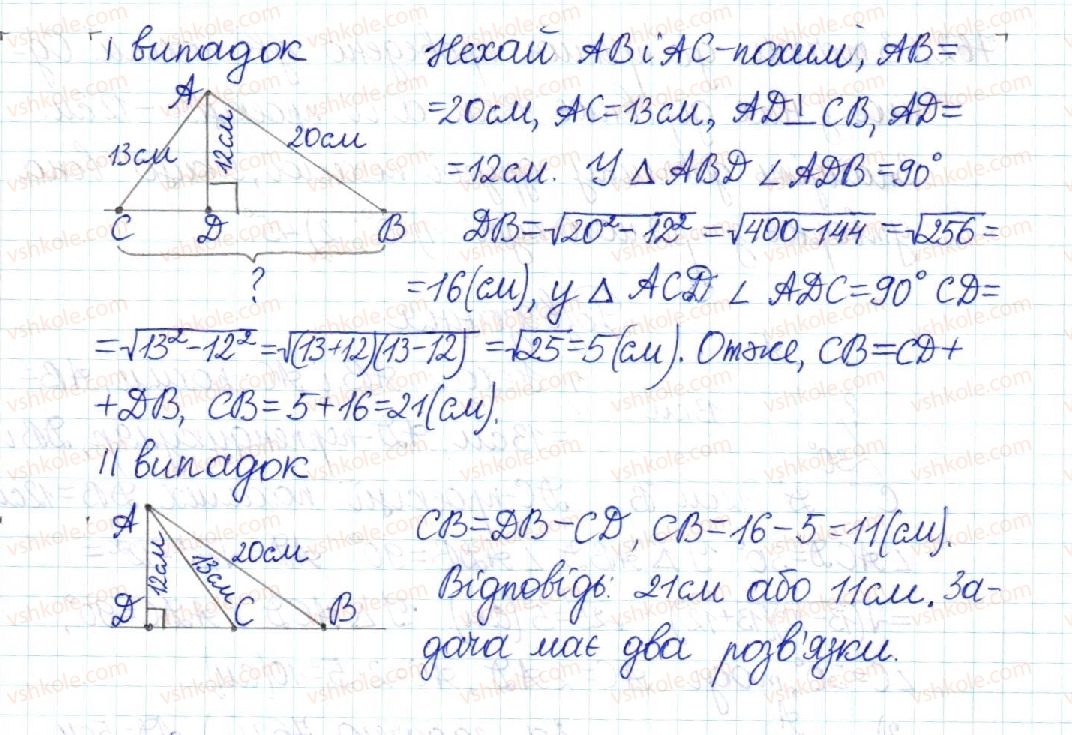 I випадок
Нехай AB і AC-похилі, AB=
=20см, AC=13см, AD⊥CB, AD=
=12см. У △ ABD ∠ ADB=90°
DB=√20²-12² =√400-144 =√256 =
=16(см), у △ ACD ∠ ADC=90° CD=
=√13²-12² =√(13+12)(13-12) =√25=5(см). Отже, CB=CD+
+DB, CB=5+16=21(см).
A
13см
12см
20см
C
D
B
?
II випадок
A
12см
13см
20см
D
C
B
CB=DB-CD, CB=16-5=11(см).
Відповідь: 21см або 11см. За-
дача має два розв'язки.
vshkole.com